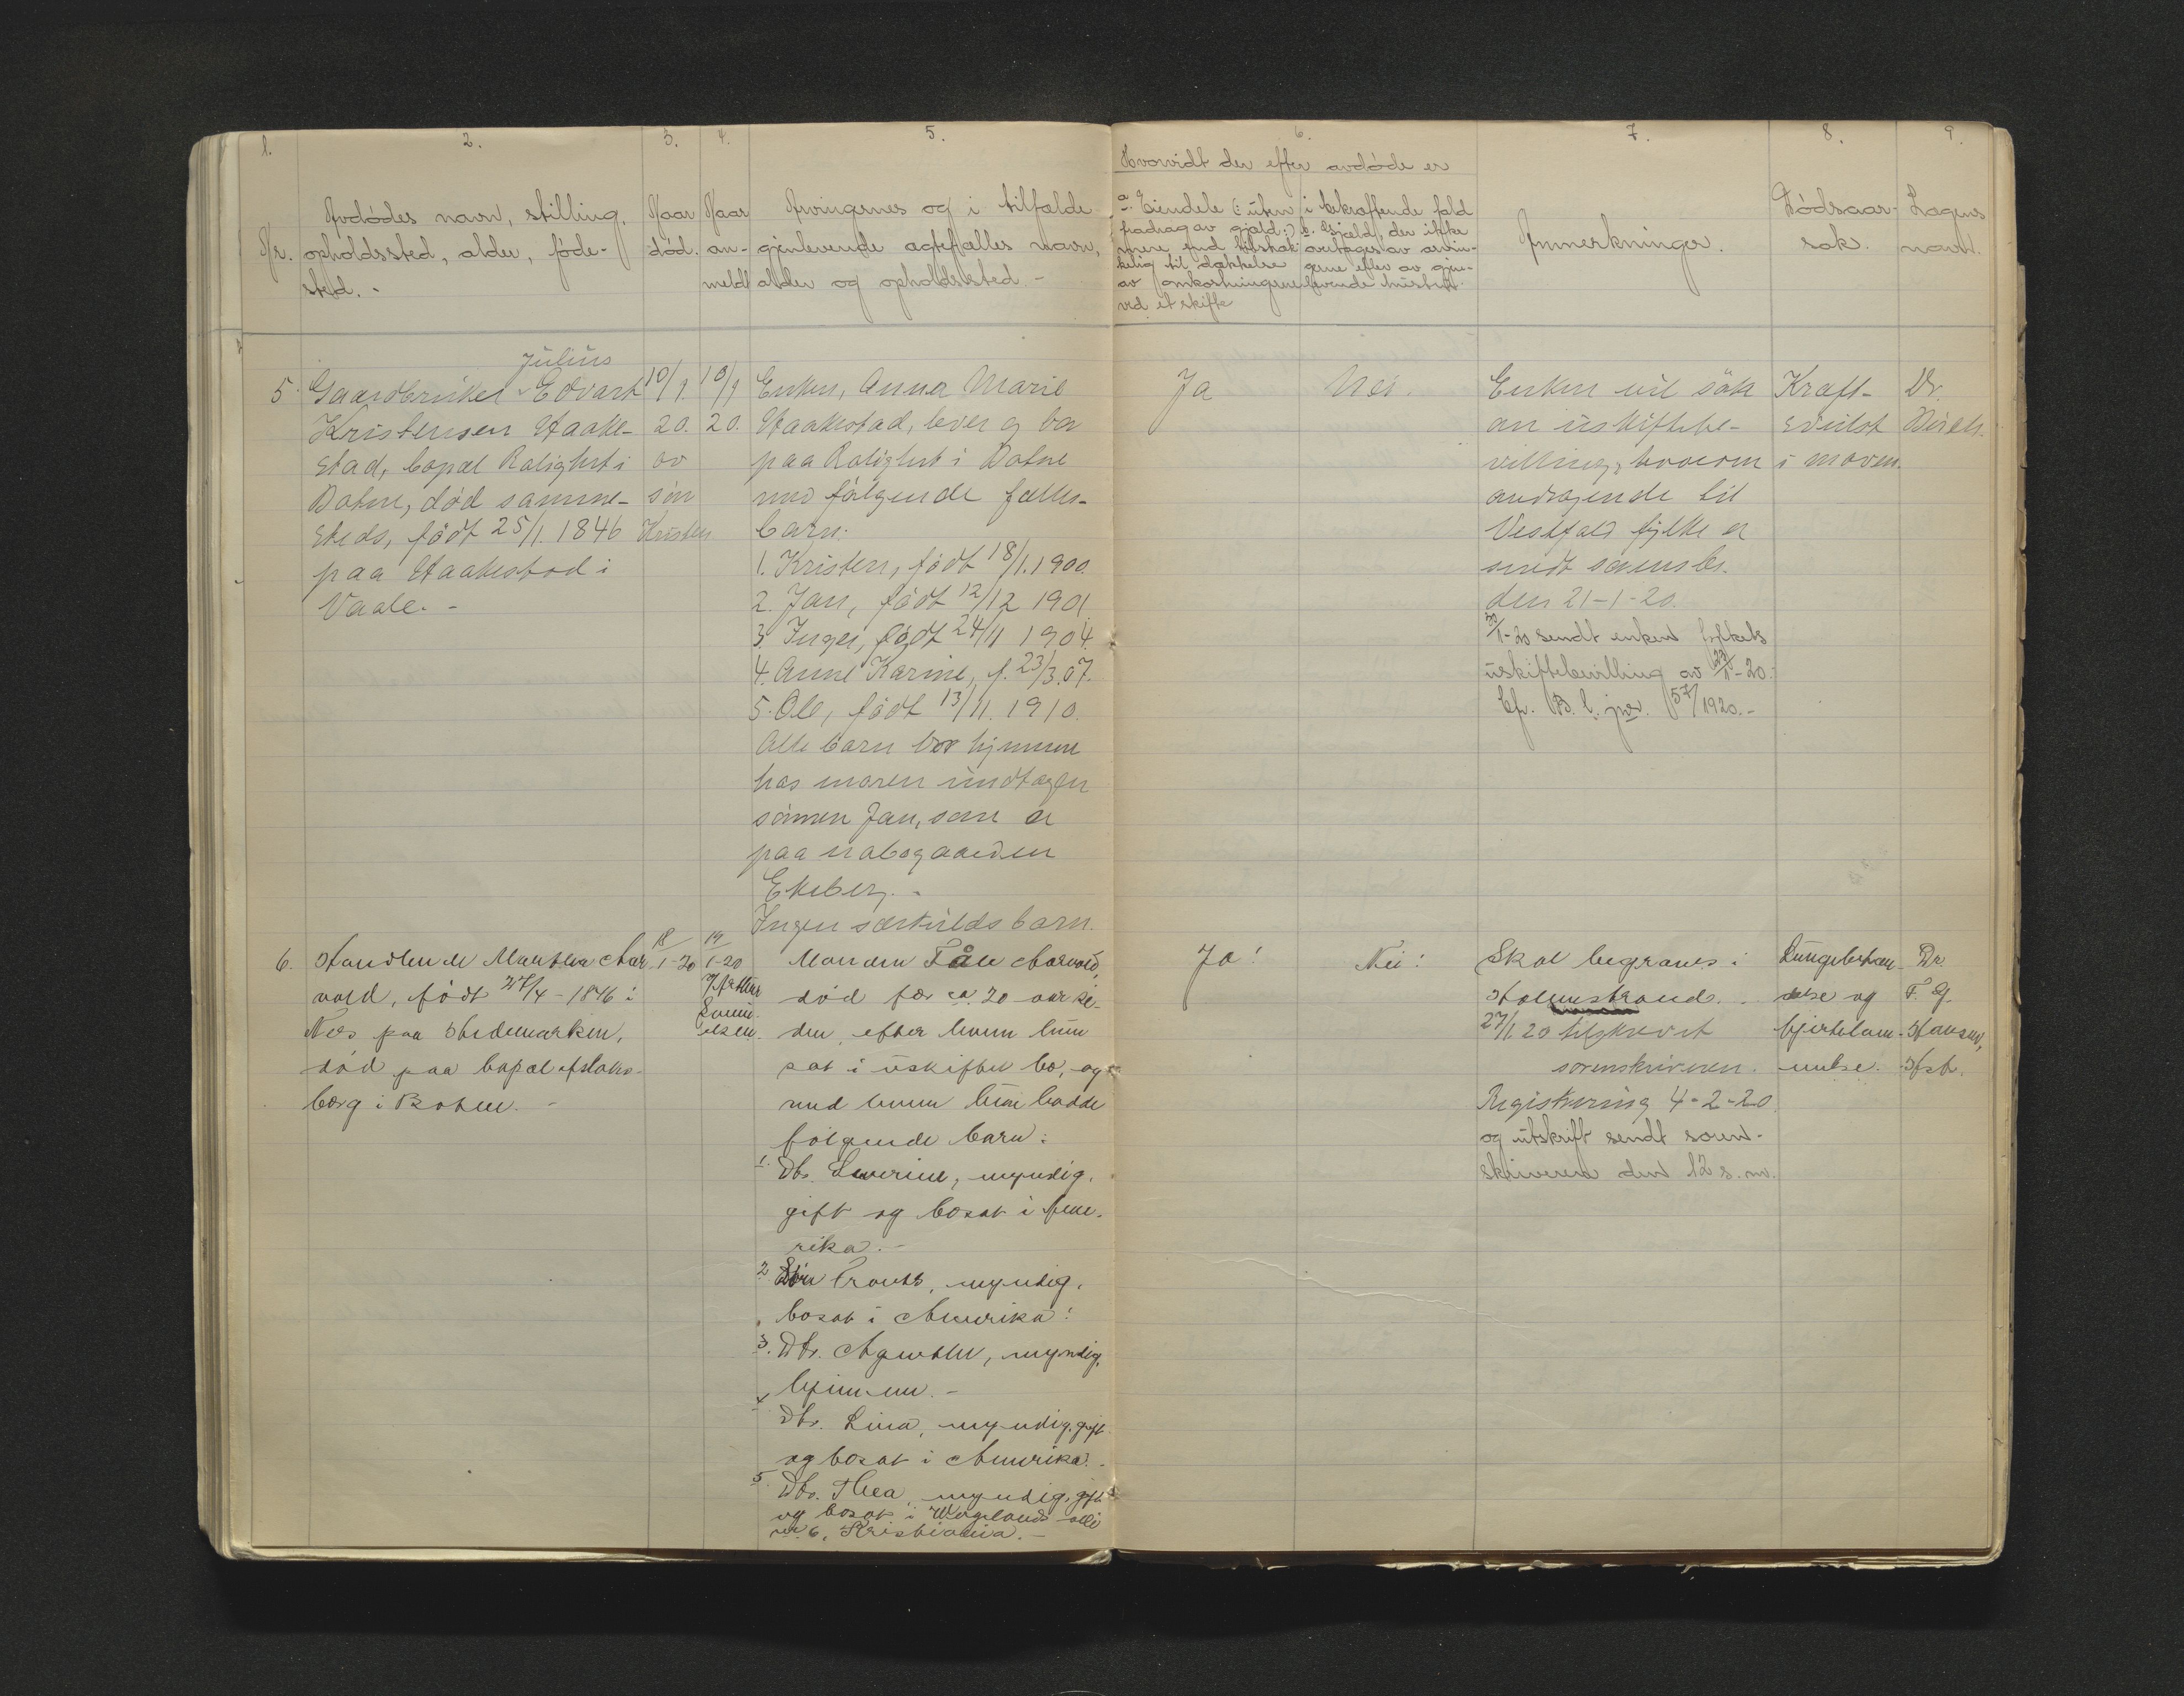 1. 2. 3. 4. 5. 6. 7. 8. 9.
Hvorvidt der efter avdøde er
Nr.
Avdødes navn, stilling,
opholdssted, alder, føde-
sted. -
Naar
død.
Naar
an-
meldt
Arvingernes og i tilfælde
gjenlevende agtefælles navn,
alder og opholdssted -
a. Eiendele (: uten
fradrag av gjæld :)
mere end tilstræk-
kelig til dækkelse
av omkostningerne
ved et skifte
i bekræftende fald
b. Gjæld, der ikke
overtages av arvin-
gerne eller av gjen-
levende
Anmerkninger.
Dødsaar-
sak.
Lægens
navn.
5.
Julius
Gaardbruker Edvart
Kristensen Haake-
stad, bopæl Rolighet i
Botne, død samme-
steds, født 25/1. 1846
paa Haakestad i
Vaale. -
10/1.
20.
10/1
20.
av
søn
Kristen
Enken, Anna Marie
Haakestad, lever og bor
paa Rolighet i Botne
med følgende fælles-
barn:
1. Kristen, født 18/1. 1900.
2. Jan, født 12/12 1901
3. Inger, født 24/11 1904.
4. Anne Karine, f. 23/3.07.
5. Ole, født 13/11. 1910.
Alle barn bor hjemme
hos moren undtagen
sønnen Jan, som er
paa nabogaarden
Ekeberg. -
Ingen særkuldsbarn.
Ja
Nei.
Enken vil søke
om uskiftebe-
villing, hvorom
andragende til
Vestfold fylke er
sendt sorenskr.
den 21-1-20.
30/1-20 sendt enken fylkets
uskiftebevilling av 23/1-20.
Cfr. B. l. jnr. 57/1920. -
Kræft-
svulst
i maven.
Dr.
6.
Handlende Marthea Aar-
vold, født 27/4 - 1846 i
Nes paa Hedemarken,
død paa bopæl
berg i Botne. -
18/
1-20
19/
1-20
Manden Påle Aarvold,
død for ca. 20 aar si-
den, efter ham hun
sat i uskiftet bo, og
med ham hun hadde
følgende barn:
1. Dtr. Severine, myndig,
gift og bosat i Ame-
rika. -
2 Søn myndig,
bosat i Amerika!
3. Dtr. Agnethe, myndig,
hjemme. -
4 Dtr. Lina, myndig, gift
og bosat i Amerika.
5 Dtr. Thea, myndig, gift
og bosat i Wergelands alle
nr. 6, Kristiania. -
Ja!
Nei!
Skal begraves i
Holmestrand.
27/1.20 tilskrevet
sorenskriveren.
Registrering 4-2-20
og utskrift sendt soren-
skriveren den 12 s. m.
Lungebetæn-
delse og
hjertelam-
melse.
Dr.
F. G.
Hansen,
Hst.